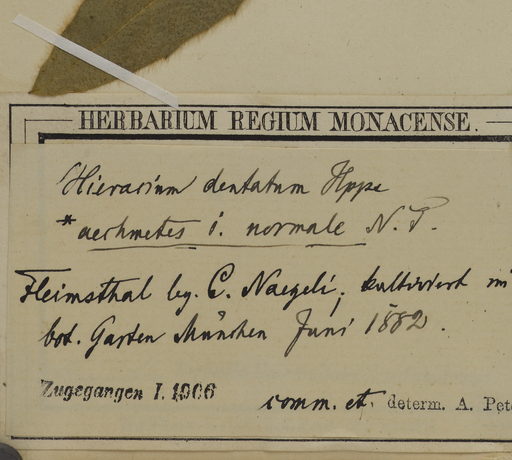 HERBARIUM REGIUM MONACENSE.
Hieracium dentatum Hppe
* aechmetes 1. normale N. P.
Fleimsthal leg. C. Naegeli; kultiviert im
bot. Garten München Juni 1882.
Zugegangen I. 1906
comm. et. determ. A. Pet